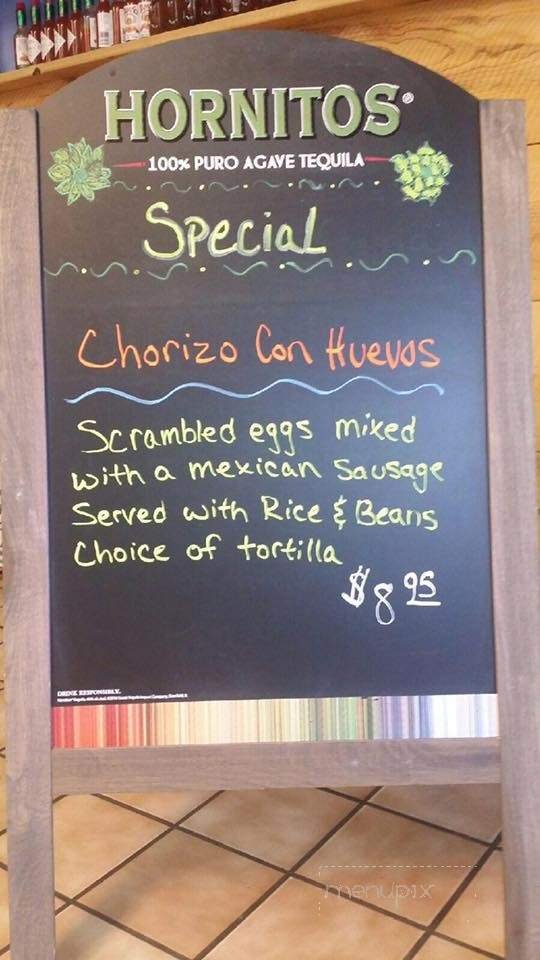 HORNITOS®
100% PURO AGAVE TEQUILA
Special
Chorizo Con Huevos
Scrambled eggs mixed
with a mexican Sausage
Served with Rice & Beans
Choice of tortilla
$8 95
DRINK RESPONSIBLY.
menupix